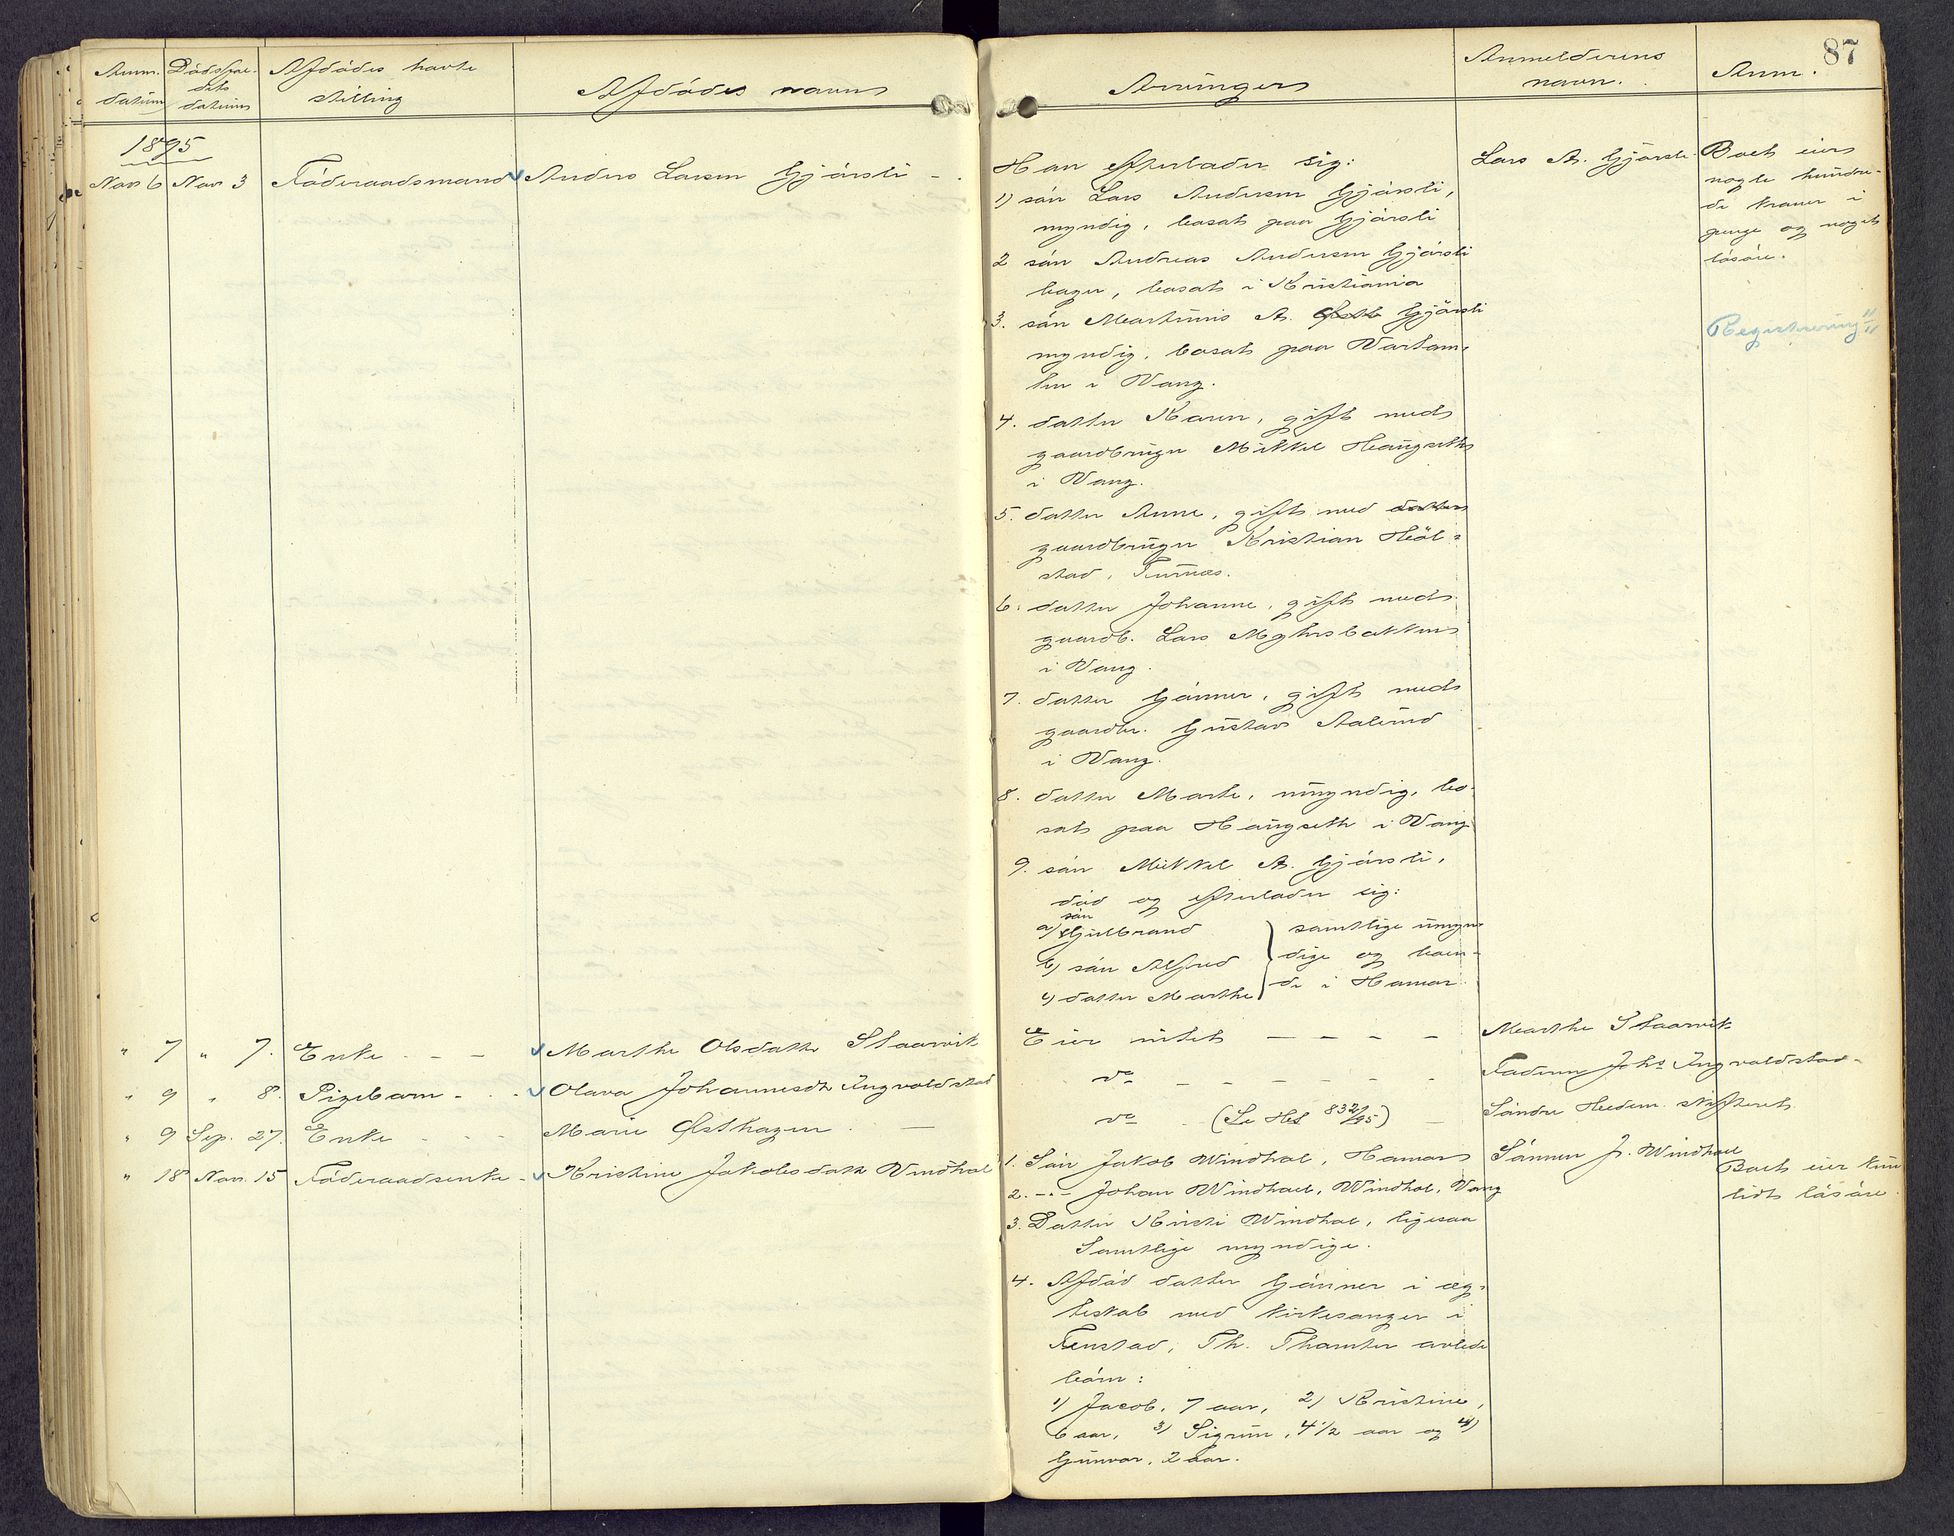 87
Anm. datum
Dödsfaldets datum
Afdödes havte stilling
Afdödes navn
Arvinger
Anmelderens navn.
Anm.
1895
Nov 6 Nov 3 Föderaadsmand Anders Larsen Gjörsli -
Han efterlader sig:
1) sön Lars Andersen Gjörsli,
myndig, bosat paa Gjörsli
2 sön Andreas Andersen Gjörsli
bager, bosat i Kristiania
3. sön Martinus A. Gjörsli
myndig, bosat paa
i Vang.
4. datter Karen, gift med
gaardbruger Mikkel Haugseth
i Vang.
5. datter Anne, gift med datter
gaardbruger Kristian Höl-
stad, Furnes.
6. datter Johanne, gift med
gaardb. Lars
i Vang.
7. datter Gönner, gift med
gaardbr. Gustav Aalund
i Vang.
8. datter Marte, umyndig, bo-
sat paa Haugseth i Vang
9. sön Mikkel A. Gjörsli,
död og efterlader sig:
a) sön Gulbrand
b) sön Alfred
c) datter Marthe
samtlige umyn-
dige og boen-
de i Hamar.
Lars A. Gjörsli.
Boet eier
nogle hundre-
de kroner i
penge og noget
lösöre.
Registrering 11/11
" 7 " 7. Enke - - Marthe Olsdatter Staarvik
Eier intet - - - -
Marthe Staarvik
" 9 " 8. Pigebarn - - Olava Johannesdtr Ingvoldstad
do - - - - - -
Faderen Johs Ingvoldstad -
" 9 Sep. 27. Enke - - Marie Østhagen -
do (Se Hst 832/95) -
Söndre Hedem. Skifteret
" 18 Nov. 15 Föderaadsenke - Kristine Jakobsdatter Windhol
1. Sön Jakob Windhol, Hamar
2. -"- Johan Windhol, Windhol, Vang
3. Datter Kirsti Windhol, ligesaa
Samtlige myndige.
4. Afdöd datter Gönner i æg-
teskab med kirkesanger i
Fenstad, Th. Thomter avlede
börn:
1) Jacob, 7 aar, 2) Kristine,
6 aar, 3) Sigrun, 4 1/2 aar og 4)
Gunvor, 2 aar.
Sönnen J. Windhol
Boet eier kun
lidt lösöre.